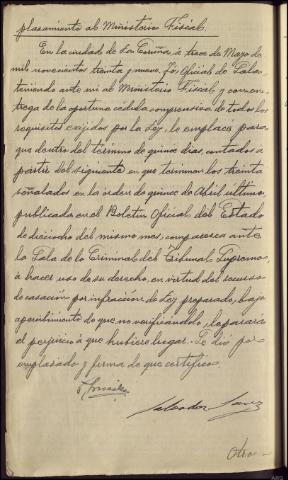 plazamiento al Ministerio Fiscal.
En la ciudad de La Coruña, a trece de Mayo de
mil novecientos treinta y nueve. Yo, Oficial de Sala
teniendo ante mi al Ministerio Fiscal y con en-
trega de la oportuna cédula comprensiva de todos los
requisitos exijidos por la Ley, le emplacé para
que dentro del término de quince dias, contados a
partir del siguiente en que terminen los treinta
señalados en la orden de quince de Abril último,
publicada en el Boletin Oficial del Estado
de dieciocho del mismo mes, comparezca ante
la Sala de lo Criminal del Tribunal Supremo,
a hacer uso de su derecho, en virtud del recurso
de casación por infracción de Ley preparado, bajo
apercibimiento de que no verificándolo, le parará
el perjuicio a que hubiere lugar. Se dió por
emplazado y firma de que certifico.
Salvador
Otro